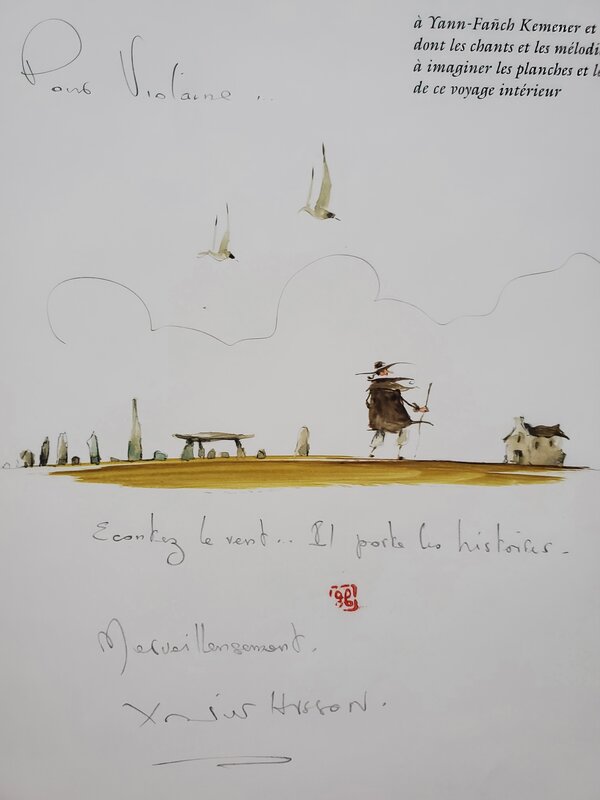 à Yann-Fañch Kemener et
dont les chants et les mélodi
à imaginer les planches et l
de ce voyage intérieur
Pour Violaine...
Ecoutez le vent... Il porte les histoires.
Merveilleusement.
Xavier Husson.